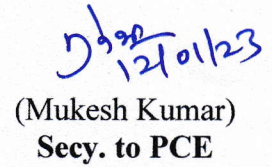 12/01/23
(Mukesh Kumar)
Secy. to PCE